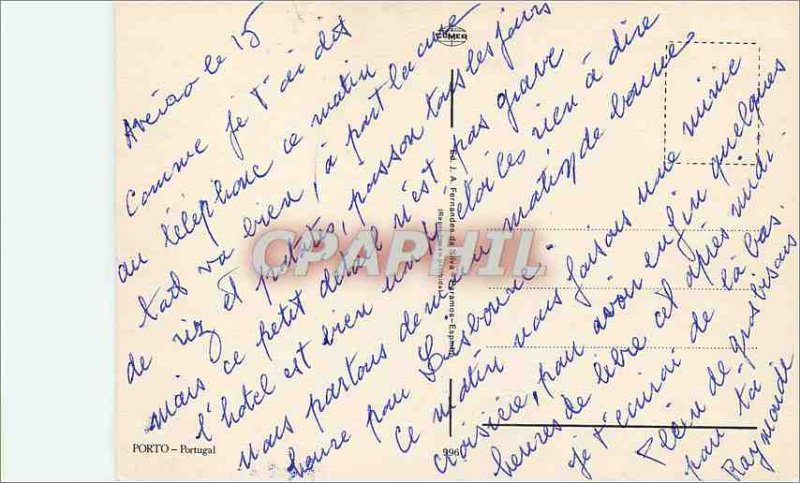 Aveiro le 15
Comme je t'ai dit
au téléphone ce matin
tout va bien, à part la cure
de riz et poulets, poisson tous les jours
mais ce petit détail n'est pas grave
l'hôtel est bien trois étoiles rien à dire
nous partons demain matin de bonne
heure pour Lisbonne
Ce matin nous faisons une mini
croisière, pour avoir enfin quelques
heures de libre cet après midi.
je t'écrirai de là bas.
Plein de gros bisous
pour toi
Raymonde
COMER
Ed. J. A. Fernandes da Silva - Paramos-Espinho
(Reprodução proibida)
996
PORTO – Portugal
CPAPHIL